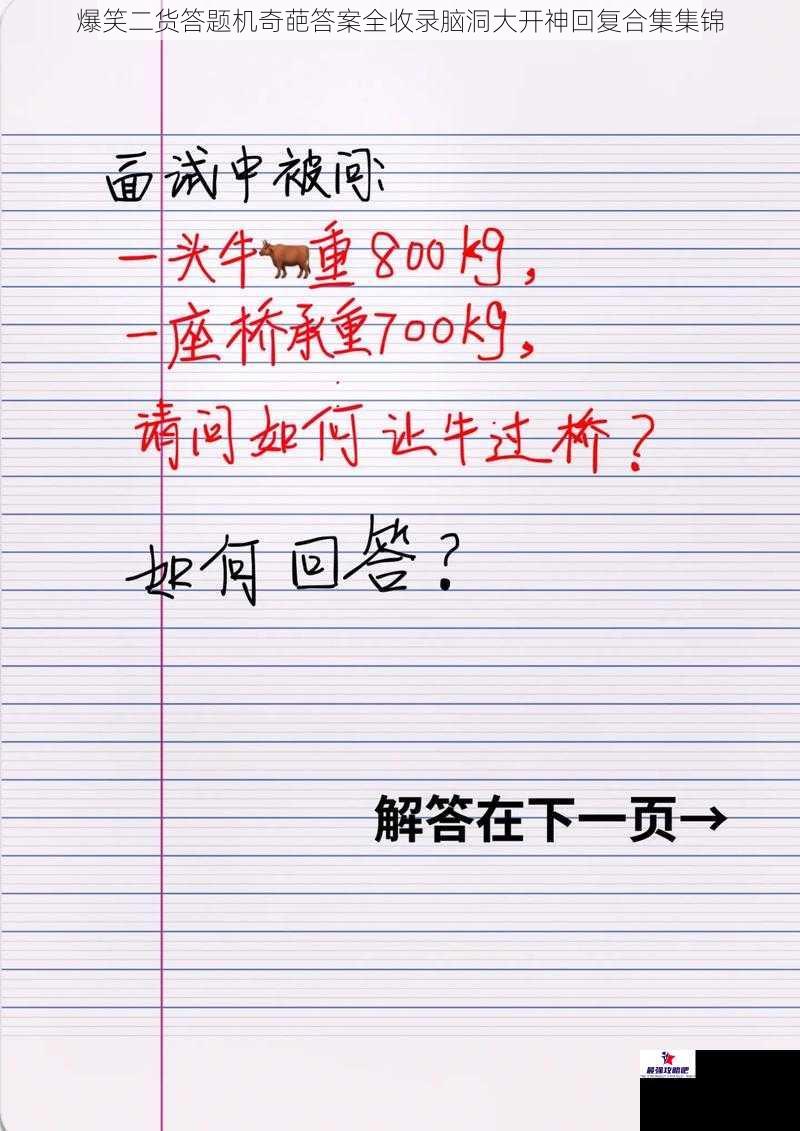 爆笑二货答题机奇葩答案全收录脑洞大开神回复合集集锦
面试中被问:
一头牛🐂重800kg,
一座桥承重700kg,
请问如何让牛过桥?
如何回答?
解答在下一页→
最强攻略吧